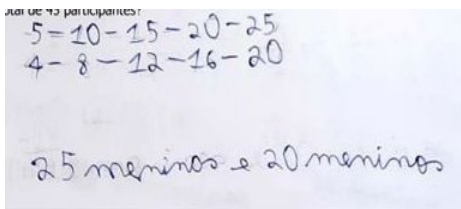 otal de 45 participantes?
5=10-15-20-25
4-8-12-16-20
25 meninos e 20 meninos